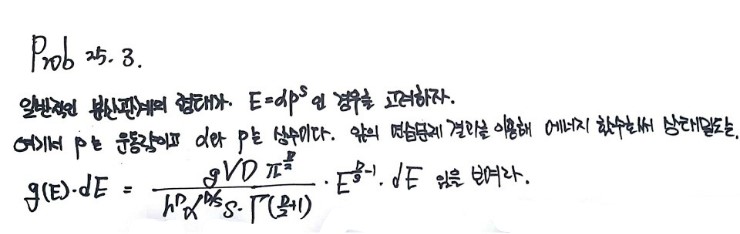 Prob 25. 3.
일반적인 분산관계의 형태가. E=αp^s 인 경우를 고려하자.
여기서 p는 운동량이고 α와 p는 상수이다. 앞의 연습문제 결과를 이용해 에너지 함수로써 상태밀도는.
g(E)·dE = \frac{gVD π^{\frac{D}{2}}}{h^D α^{D/s} s·Γ(\frac{D}{2}+1)} · E^{\frac{D}{s}-1}. dE 임을 보여라.